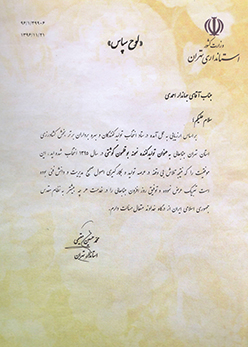 وزارت کشور
استانداری تهران
۹۶/۱/۳۹۹۰۶
۱۳۹۶/۱۱/۲۱
«لوح سپاس»
جناب آقای جهاندار احمدی
سلام علیکم؛
بر اساس ارزیابی به عمل آمده در ستاد انتخاب تولیدکنندگان و بهره برداران برتر بخش کشاورزی
استان تهران جنابعالی به عنوان تولیدکننده نمونه بوقلمون گوشتی در سال ۱۳۹۵ انتخاب شده اید. این
موفقیت را که نتیجه تلاش بی وقفه در عرصه تولید و بکارگیری اصول صحیح مدیریت و دانش فنی بوده
است تبریک عرض نموده و توفیق روز افزون جنابعالی را در خدمت هر چه بیشتر به نظام مقدس
جمهوری اسلامی ایران از درگاه خداوند متعال مسألت دارم.
محمد حسین مقیمی
استاندار تهران